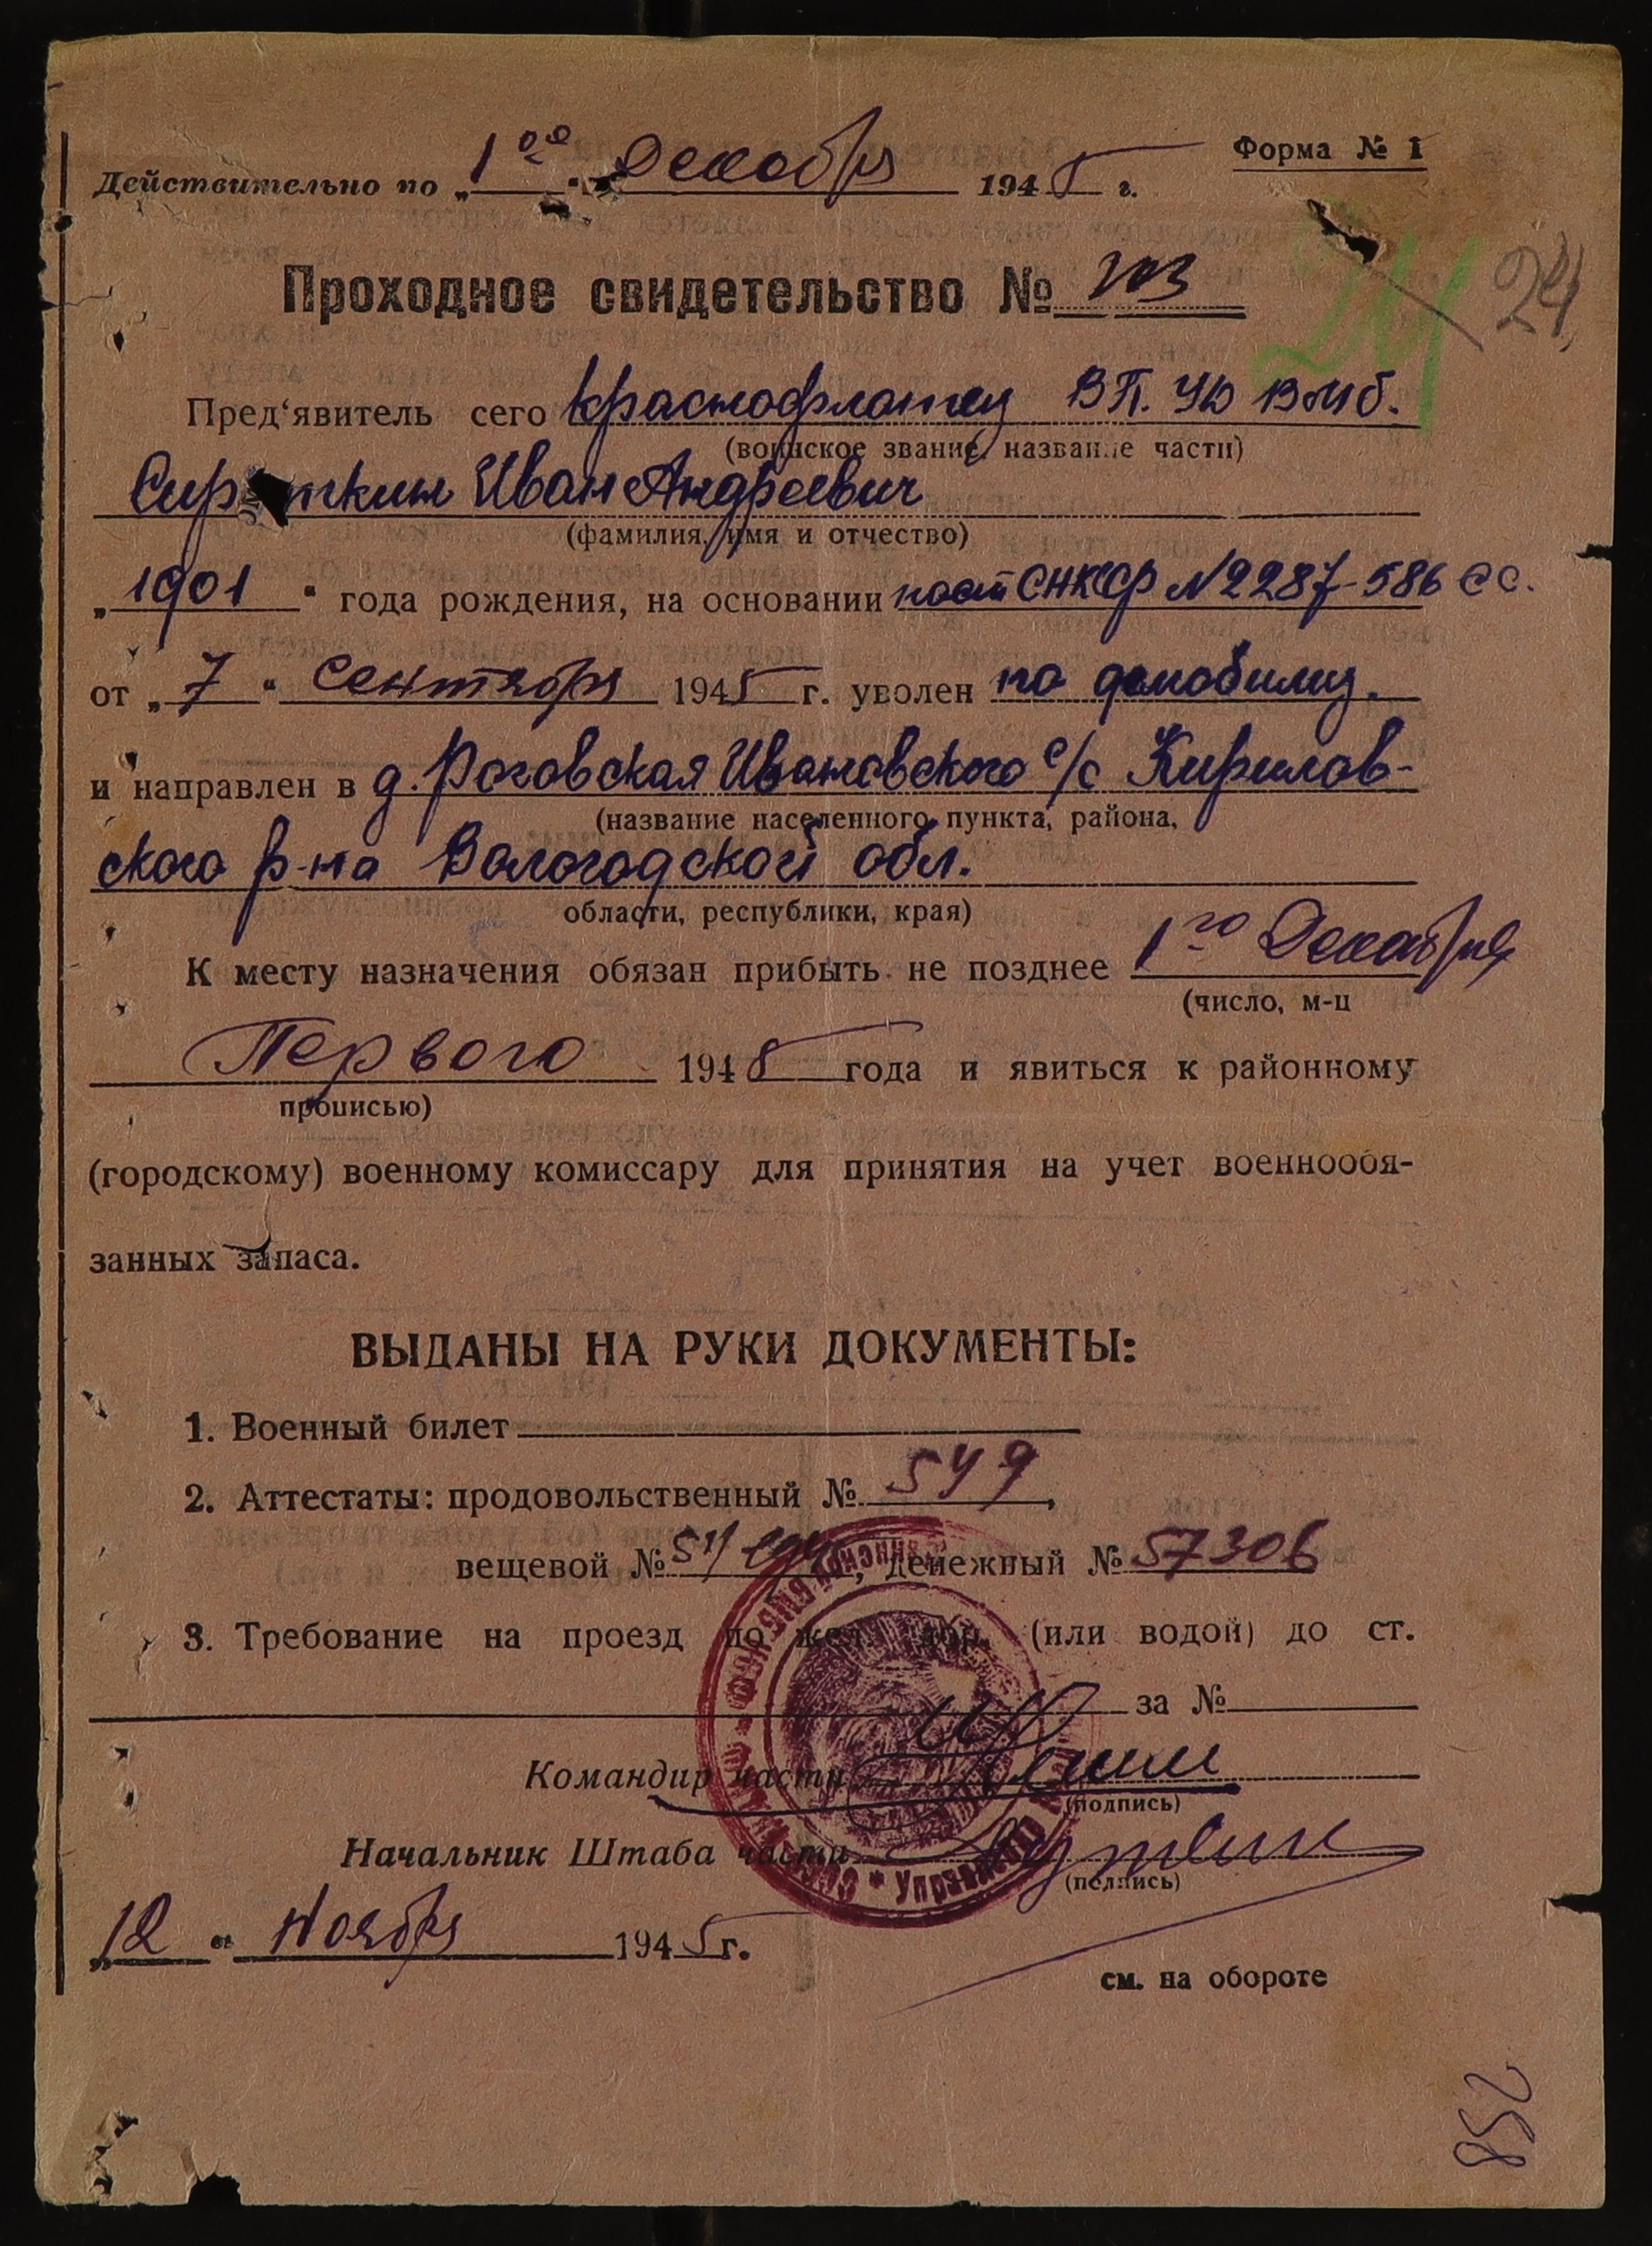 Форма № 1
Действительно по „1ое“ Декабря 1945 г.
Проходное свидетельство № 203
24 24
Пред‘явитель сего краснофлотец ВП. УЮ ВМБ.
(воинское звание, название части)
Иван Андреевич
(фамилия, имя и отчество)
„1901“ года рождения, на основании пост СНКССР №2287-586 сс.
от „7“ Сентября 1945 г. уволен по демобилиз.
и направлен в д. Роговская Ивановского с/с Кирилов-
(название населенного пункта, района,
ского р-на Вологодской обл.
области, республики, края)
К месту назначения обязан прибыть не позднее 1го Декабря
(число, м-ц
Первого 1945 года и явиться к районному
прописью)
(городскому) военному комиссару для принятия на учет военнообя-
занных запаса.
ВЫДАНЫ НА РУКИ ДОКУМЕНТЫ:
1. Военный билет
2. Аттестаты: продовольственный № 549,
вещевой № , денежный № 57306
3. Требование на проезд по жел. дор. (или водой) до ст.
за №
Командир части
(подпись)
Начальник Штаба части
(подпись)
„12“ Ноября 1945 г.
см. на обороте
258